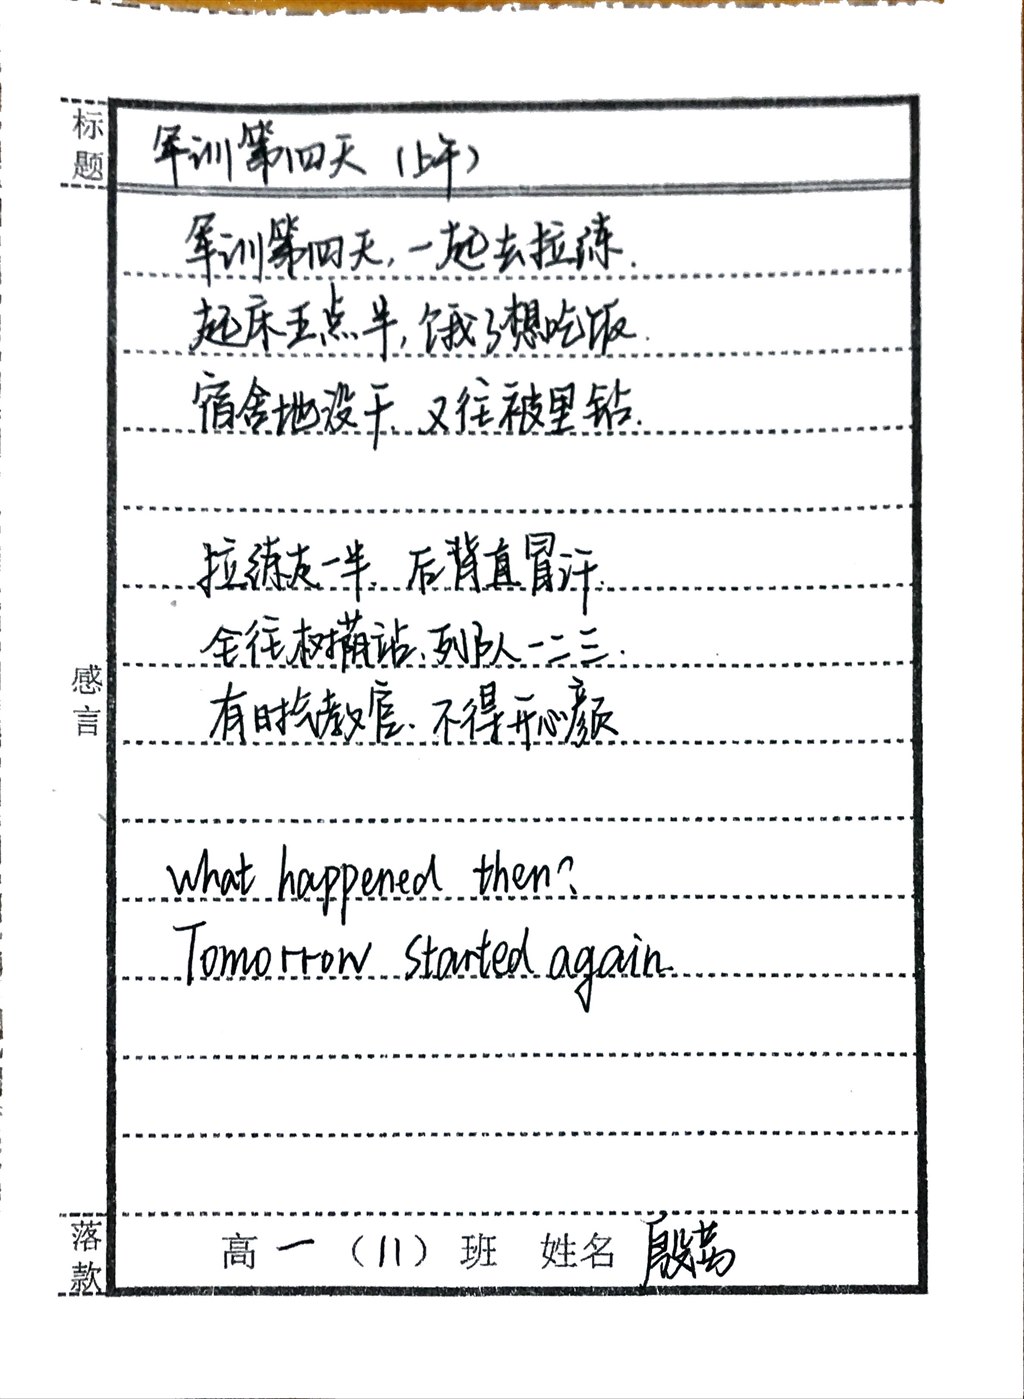 标题
军训第四天（上午）
军训第四天,一起去拉练.
起床五点半,饿了想吃饭.
宿舍地没干,又往被里钻.
拉练走一半,后背直冒汗.
全往树荫站,列队一二三.
有时气教官,不得开心颜
感言
what happened then?
Tomorrow started again.
落款
高一（11）班 姓名 殷